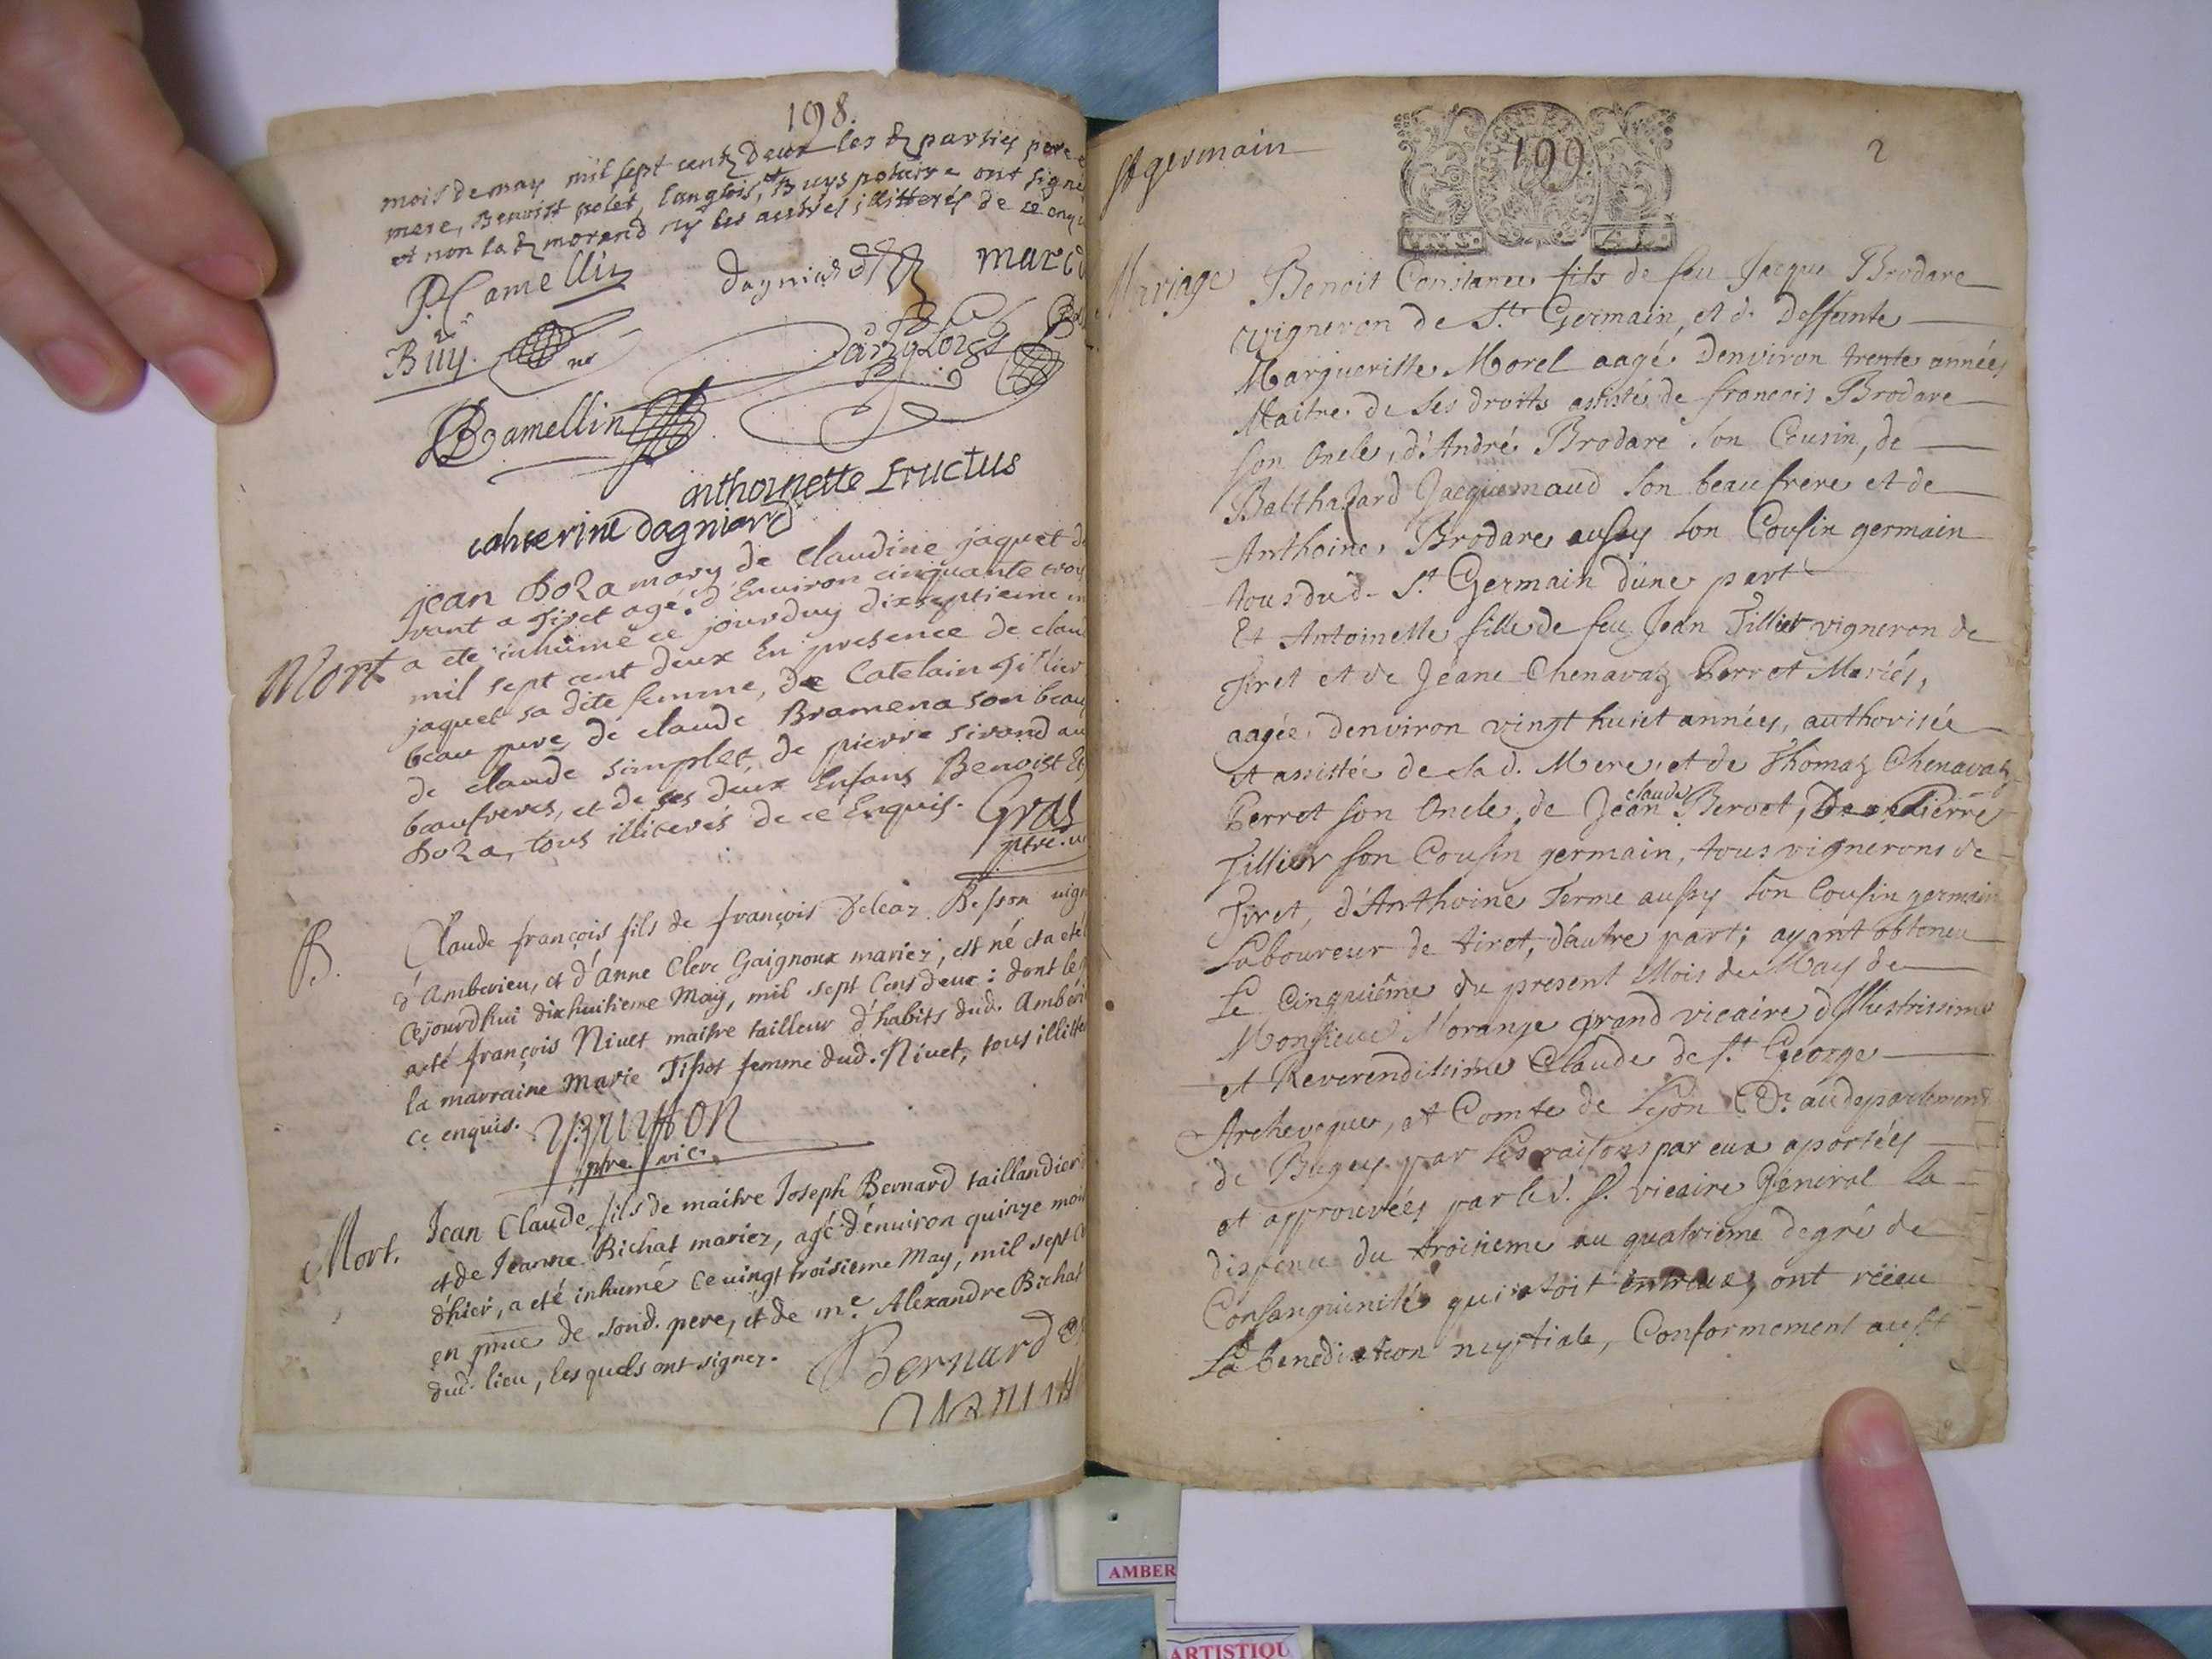 198.
mois de may mil sept centz deux les d parties pere e
mere, Benoist polet, langlois, et Buys notaire ont signé
et non la d morand ny les autres illitterés de ce enqu
P. Camellin
Dagniard
marcd
Buy
Langlois
B
B Camellin
anthoinette Fructus
catherine Dagniard
Mort
jean Boza mary de Claudine jaquet d
vant a Tiret agé d'Environ cinquante troy
a ete inhumé ce jourduy dixseptieme m
mil sept cent deux En presence de clau
jaquet sa dite femme, de Catelain Tillier
beau pere, de claude Bramena son beau
de claude simplet, de pierre sirand au
beaufreres, et de ses deux Enfans Benoist Et
Boza, tous illiterés de ce Enquis. Gras
ptre. v
B.
Claude françois fils de françois Deleaz Besson vign
d'Amberieu, et d'anne Clerc Gaignoux mariez, est né et a eté
Cejourdhui dixhuitieme May, mil sept Cens deux : dont le p
a eté françois Nivet maitre tailleur d'habits dud. Amberi
la marraine Marie Tissot femme dud. Nivet, tous illitte
ce enquis.
ptre. vic.
Mort.
Jean Claude fils de maitre Joseph Bernard taillandier
et de Jeanne Bichat mariez, agé d'environ quinze moi
d'hier, a eté inhumé Ce vingt troisieme May, mil sept c
en pnce de sond. pere, et de me. Alexandre Bichat
dud. lieu, lesquels ont signez.
Bernard
St germain
199
2
Mariage
Benoit Constance fils de feu Jacque Brodare
vigneron de St. Germain, et de deffunte
Margueritte Morel aagé denviron trente années
Maitre de ses droits assisté de francois Brodare
son Oncle, d'André Brodare son Cousin, de
Balthazard Jacquemaud son beaufrere et de
Anthoine Brodare aussy son Cousin germain
tous dud. St Germain d'une part
Et Antoinette fille de feu Jean Tillier vigneron de
Tiret et de Jeane Chenavaz Perret Mariés,
aagée denviron vingt huict années, authorisée
et assistée de la d. Mere, et de Thomaz Chenavaz
Perret son Oncle, de Jean claude Beroet, De Pierre
Tillier son Cousin germain, tous vignerons de
Tiret, d'Anthoine Ferme aussy son Cousin germain
laboureur de tiret, d'autre part; ayant obtenu
Le Cinquiême du present Mois de May de
Monsieur Morange grand vicaire d'Illustrissime
et Reverendissime Claude de St George
Archeveque, et Comte de Lyon &c. au departement
de Bugey par les raisons par eux aportées
et approuvées par le d. S. vicaire General la
dispence du troisieme au quatrieme degré de
Consanguinité qui estoit entreux, ont réceu
La benediction nuptiale, Conformement au St
AMBER
ARTISTIQU